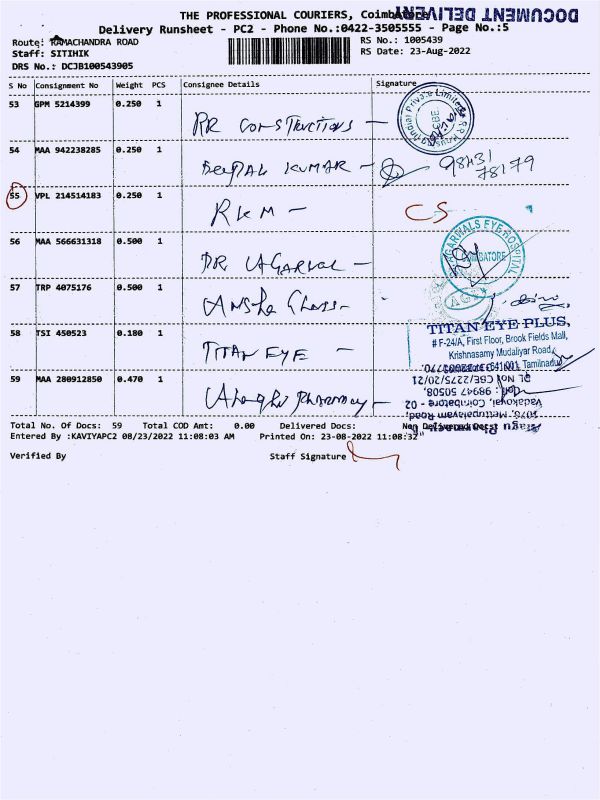 THE PROFESSIONAL COURIERS, Coimbatore
DOCUMENT DELIVERY
Delivery Runsheet - PC2 - Phone No.:0422-3505555 - Page No.:5
Route: RAMACHANDRA ROAD
RS No.: 1005439
Staff: SITIHIK
RS Date: 23-Aug-2022
DRS No.: DCJB100543905
S No Consignment No Weight PCS Consignee Details Signature
53 GPM 5214399 0.250 1 RR CONSTRUCTIONS
54 MAA 942238285 0.250 1 DEEPAK KUMAR 98431
78179
55 VPL 214514183 0.250 1 RKM CS
56 MAA 566631318 0.500 1 DR AGARWAL
AGARWALS EYE HOSPITAL
COIMBATORE
57 TRP 4075176 0.500 1
58 TSI 450523 0.180 1 TITAN EYE
TITAN EYE PLUS,
# F-24/A, First Floor, Brook Fields Mall,
Krishnasamy Mudaliyar Road,
641001 Tamilnadu
59 MAA 280912850 0.470 1 Pharmacy
DL No: CBE/2225/20/21
: 98947 50508,
Vadakovai, Coimbatore - 02
Mettupalayam Road,
Total No. Of Docs: 59 Total COD Amt: 0.00 Delivered Docs: Non Delivered Docs:
Entered By :KAVIYAPC2 08/23/2022 11:08:03 AM Printed On: 23-08-2022 11:08:32
Verified By Staff Signature